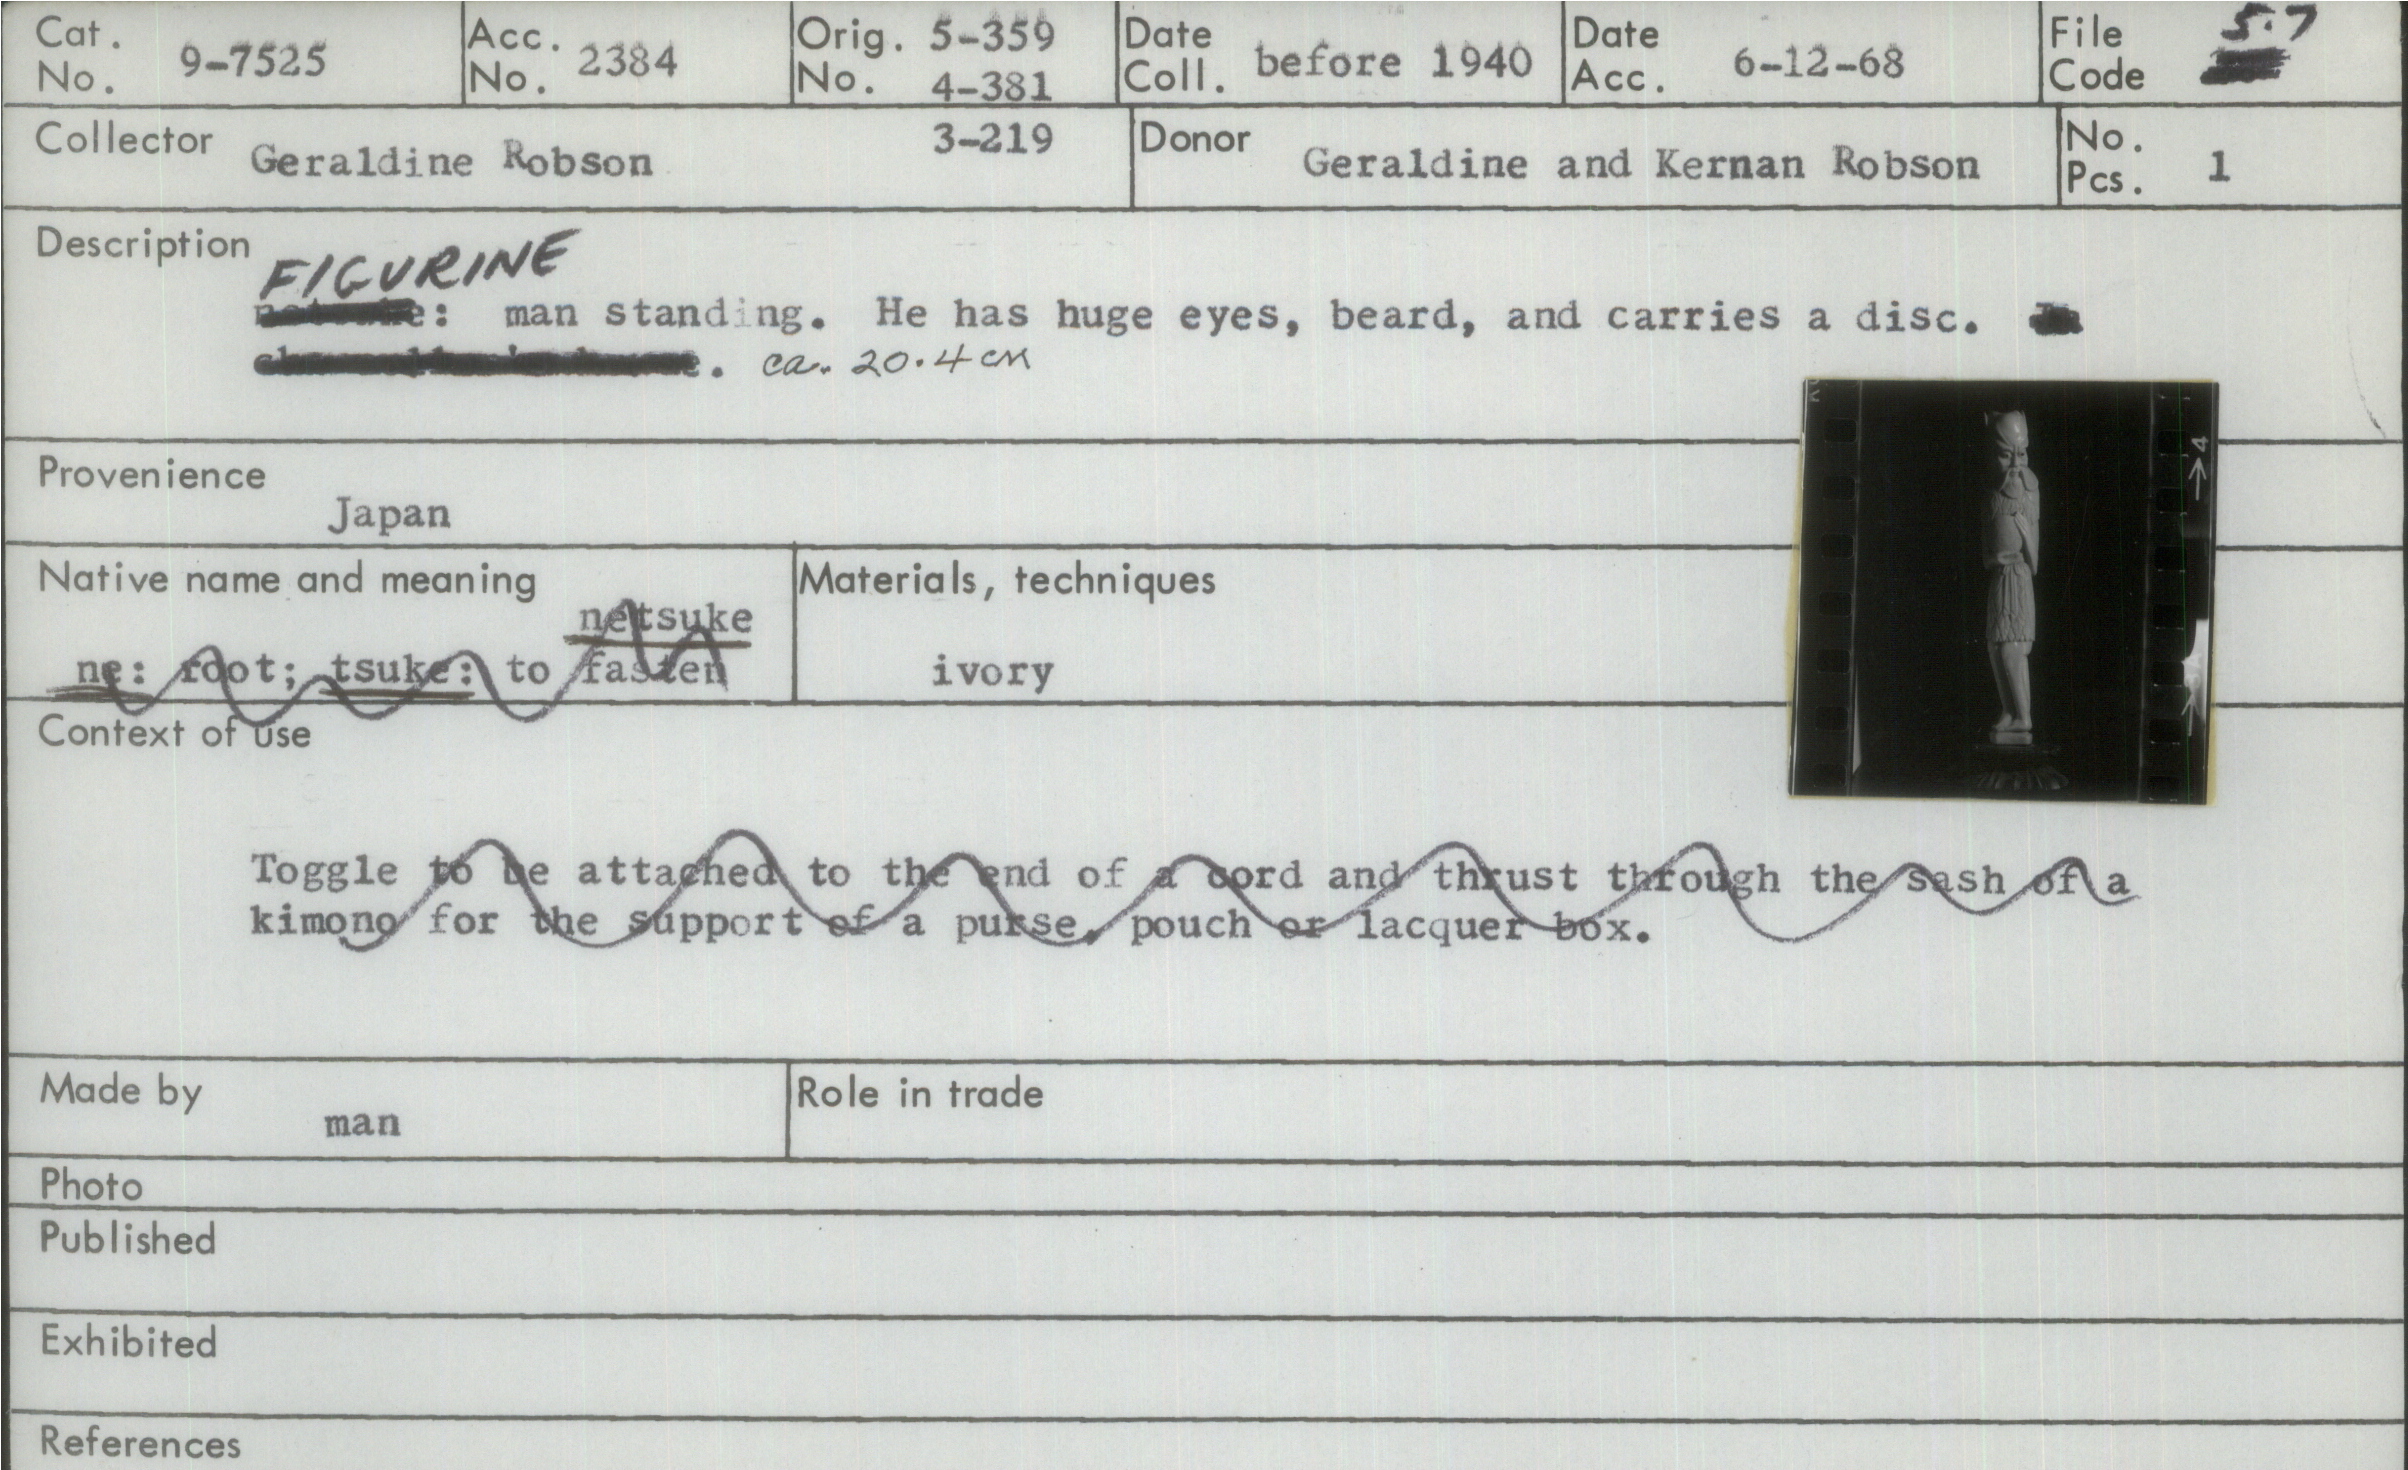 Cat. No. 9-7525
Acc. No. 2384
Orig. No. 5-359
4-381
3-219
Date Coll. before 1940
Date Acc. 6-12-68
File Code 5.7
Collector Geraldine Robson
Donor Geraldine and Kernan Robson
No. Pcs. 1
Description
FIGURINE
: man standing. He has huge eyes, beard, and carries a disc.
. ca. 20.4 cm
Provenience
Japan
Native name and meaning
netsuke
ne: root; tsuke: to fasten
Materials, techniques
ivory
4
Context of use
Toggle to be attached to the end of a cord and thrust through the sash of a
kimono for the support of a purse, pouch or lacquer box.
Made by
man
Role in trade
Photo
Published
Exhibited
References